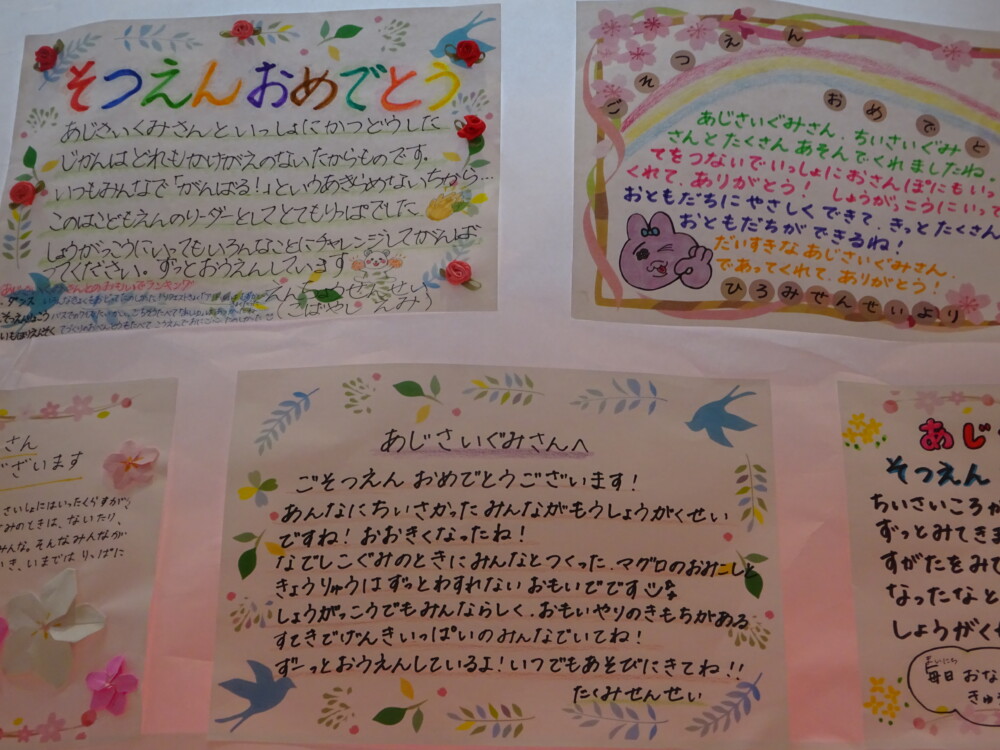 そつえんおめでとう
あじさいくみさんといっしょにかつどうした
じかんはどれもかけがえのないたからものです。
いつもみんなで「がんばる！」というあきらめないちから…
このはこどもえんのリーダーとしてとてもりっぱでした
しょうがっこうにいってもいろんなことにチャレンジしてがんば
ってください。ずっとおうえんしています
えんちょうせんせい
(こばやし えみ)
おもいでランキング
ダンス
ごそつえん
おめでと
あじさいぐみさん、ちいさいぐみ
さんとたくさんあそんでくれましたね。
てをつないでいっしょにおさんぽにもいっ
くれて、ありがとう！ しょうがっこうにいって
おともだちにやさしくできて、きっとたくさん
おともだちができるね！
だいすきなあじさいぐみさん、
であってくれて、ありがとう！
ひろみせんせいより
さん
ございます
さいしょにはいったくらすが
ぐみのときは、ないたり、
みんな。そんなみんなが
いき、いまでは りっぱに
あじさいぐみさんへ
ごそつえん おめでとうございます！
あんなにちいさかったみんながもうしょうがくせい
ですね！おおきくなったね！
なでしこぐみのときにみんなとつくった、マグロのおみこしと
きょうりゅうはずっとわすれないおもいでです
しょうがっこうでもみんならしく、おもいやりのきもちがある
すてきでげんきいっぱいのみんなでいてね！
ずーっとおうえんしているよ！いつでもあそびにきてね！！
たくみせんせい
あじ
そつえん
ちいさいころか
ずっとみてきま
すがたをみて
なったなと
しょうがく
まいにち
毎日 おな
きゅう